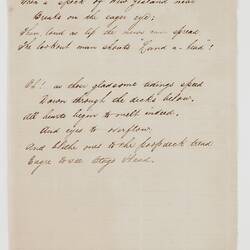 Then a speck of New Zealand near
Breaks on the eager eye;
Then loud as lip the news can spread
The lookout man shouts "Land a-head"!
Oh! as these gladsome tidings speed
Down through the decks below,
All hearts begin to melt indeed,
And eyes to overflow.
And blithe ones to the poop deck tread
Eager to see Otago Head.